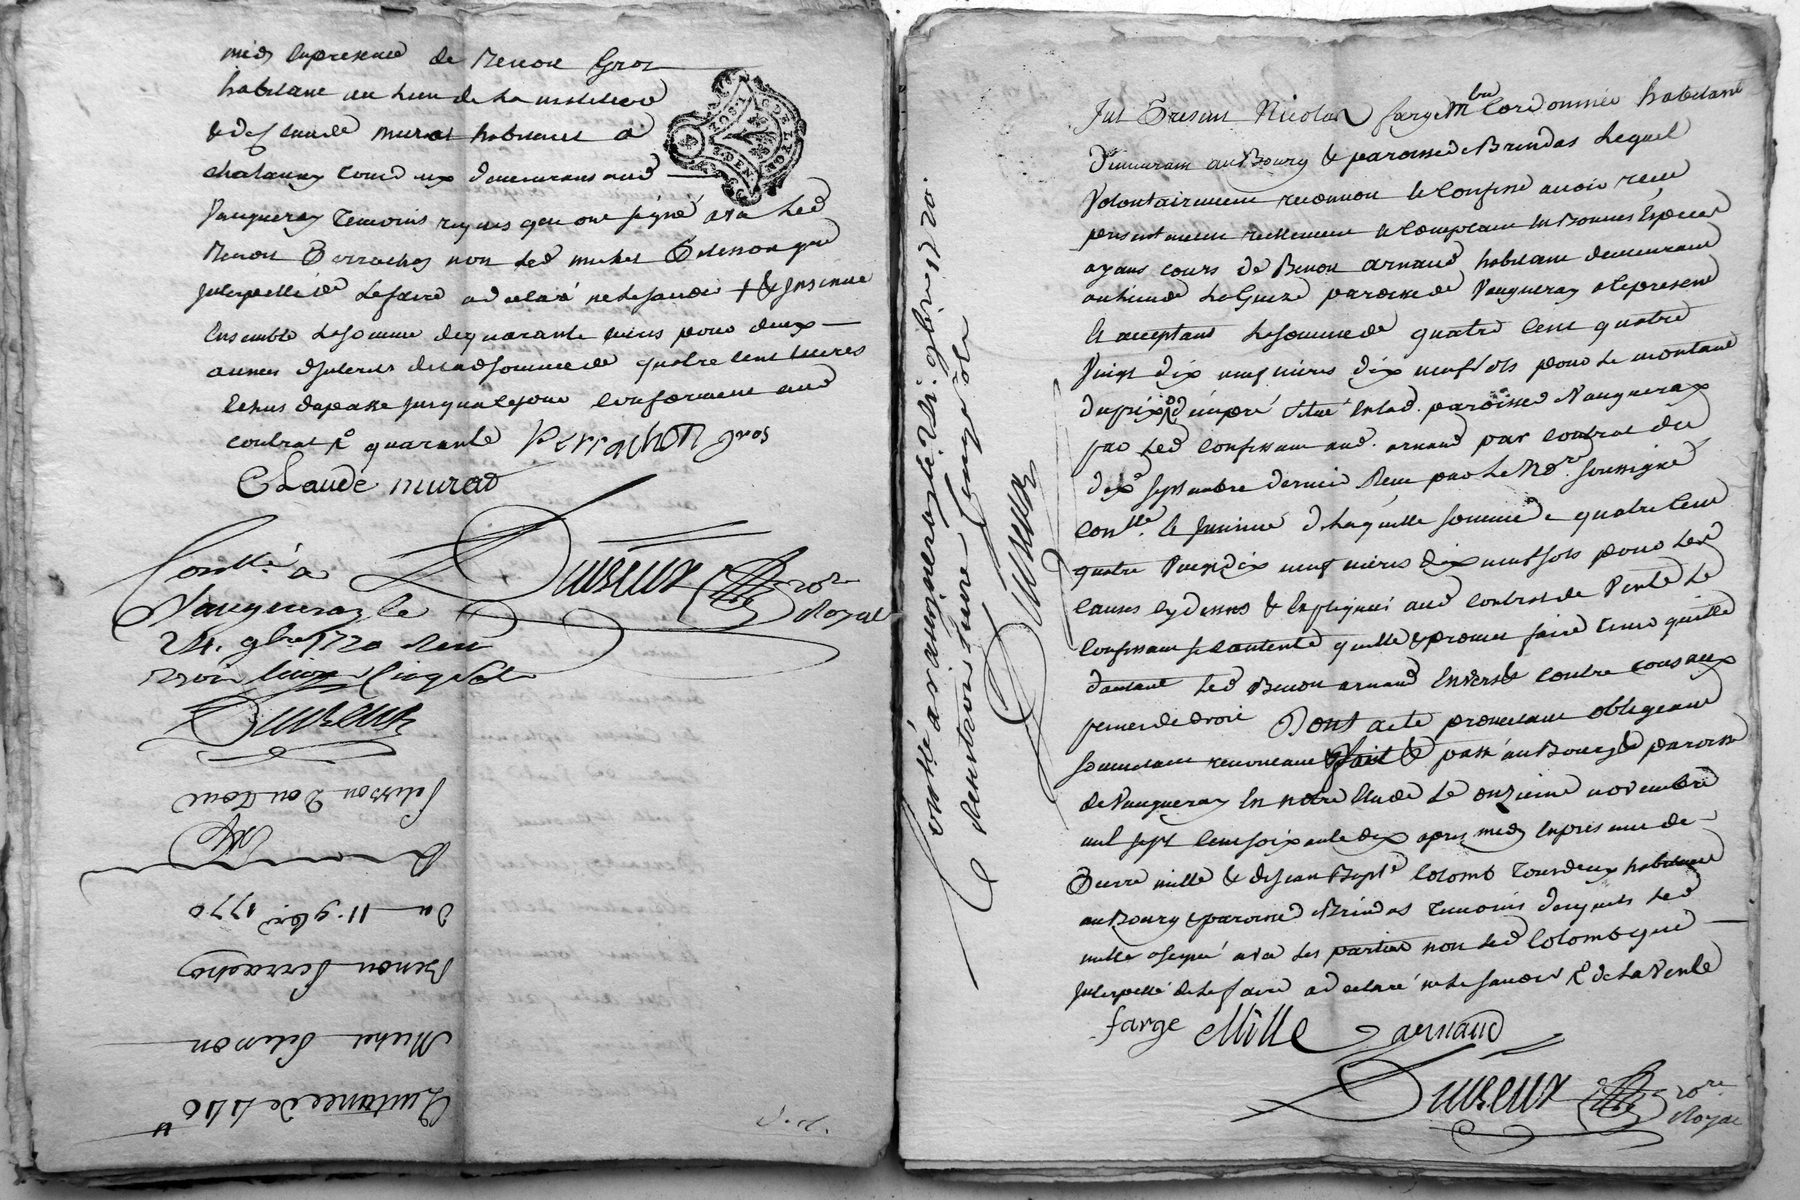 midy en presence de Benoit Gros
habitant au lieu de la
& de Claude murat habitant a
chatanay tous deux demeurans aud
Vaugneray temoins requis qui ont signé avec led
Benoit Perrachon non led michel Pelisson que
Interpellé de le faire a declaré ne le savoir + & Insinué
Ensemble la somme de quarante livres pour deux
années d'Interets de lad somme de quatre cent livres
echus dupassé jusqua ce jour conformement aud
contrat p^r quarante Perrachon gros
Claude murat
Duvieux no^re
Royal
Conllé a
Vaugneray le
24. 9bre 1770 Reçu
trois livres cinq sols
Duvieux
GEN. DE LYON
2 DEN.
Quitance de 440"
Michel Pelisson
Benoit Perrachon
Du 11. 9bre 1770
Pelisson
Conllé a vaugneray le 24. 9bre 1770.
Duvieux
Fut Present Nicolas farge M^tre Cordonnier habitant
Demeurant au Bourg & paroisse de Brindas Lequel
Volontairement reconnoit & confesse avoir recu
presentement reellement & comptant en Bonnes Especes
ayans cours de Benoit arnaud habitant demeurant
au lieu de paroisse de Vaugneray a ce present
& acceptant la somme de quatre cent quatre
Vingt dix neuf livres dix neuf sols pour le montant
du prix d'un pré situé en lad. paroisse de Vaugneray
par led confessant aud. arnaud par contrat du
dix septembre dernier Recu par le No^re soussigné
con^llé & Insinué De laquelle somme de quatre cent
quatre Vingt dix neuf livres dix neuf sols pour les
causes cy dessus & expliquées aud contrat de Vente Le
Confessant se contente quitte & promet faire tenir quitte
d'autant led Benoit arnaud Envers & contre tous aux
peines de droit Dont acte promettant obligeant
soumettant renonceant fait & passé au Bourg & paroisse
de Vaugneray en notre Etude Le onzieme novembre
mil sept cent soixante dix apres midy en presence de
Pierre mille & de Jean Bapt^te Colomb tous deux habitans
au Bourg & paroisse de Brindas temoins desquels led
mille a signé avec les parties non led Colomb que
Interpellé de le faire a declaré ne le savoir p^r de La Vente
farge Mille arnaud
Duvieux no^re
Royal